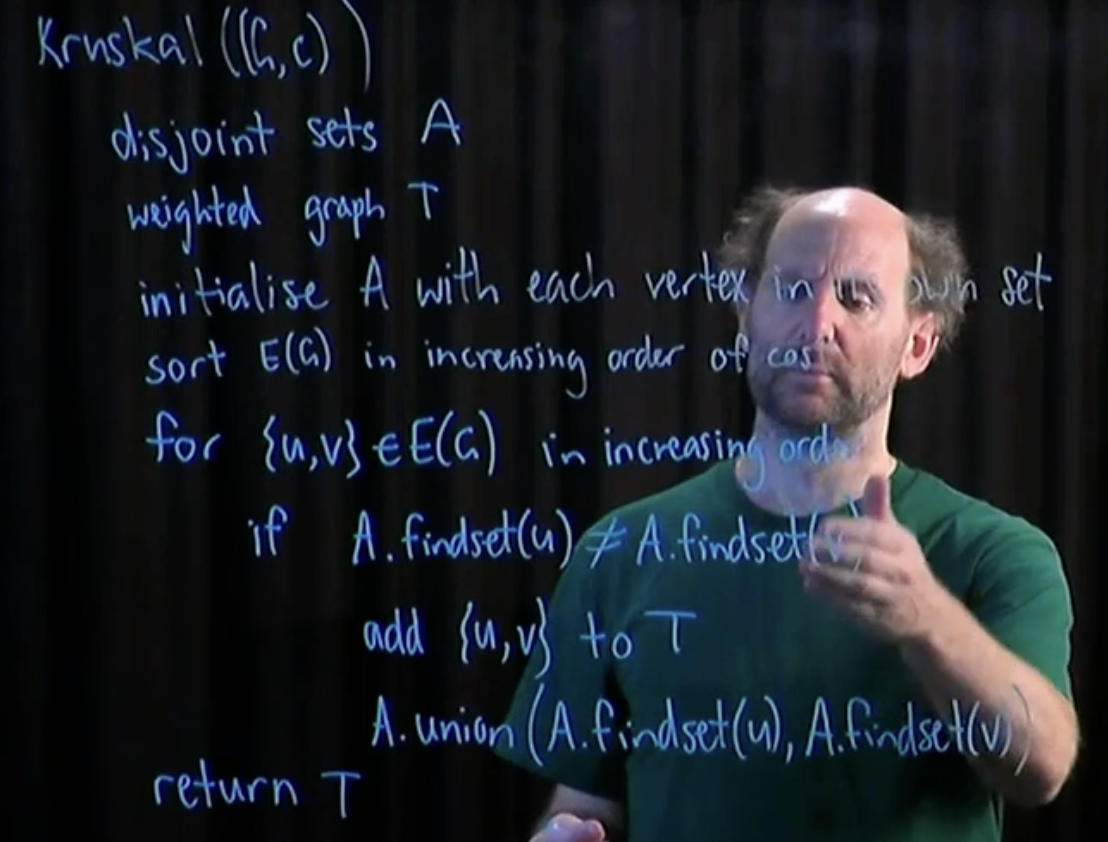 Kruskal ((G,c))
disjoint sets A
weighted graph T
initialise A with each vertex in own set
sort E(G) in increasing order of cos
for {u,v} ∈ E(G) in increasing order
if A.findset(u) ≠ A.findset(v)
add {u,v} to T
A.union (A.findset(u), A.findset(v))
return T